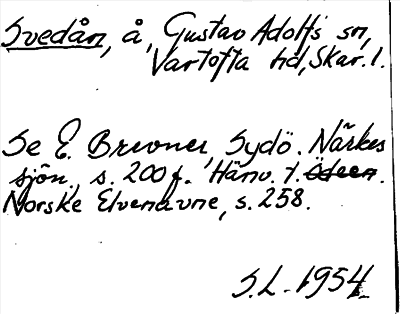 Svedån, å, Gustav Adolfs sn,
Vartofta hd, Skar. l.
Se E. Brevner, Sydö. Närkes
sjön., s. 200 f. Hänv. t. Ödeen.
Norske Elvenavne, s. 258.
S.L. 1954